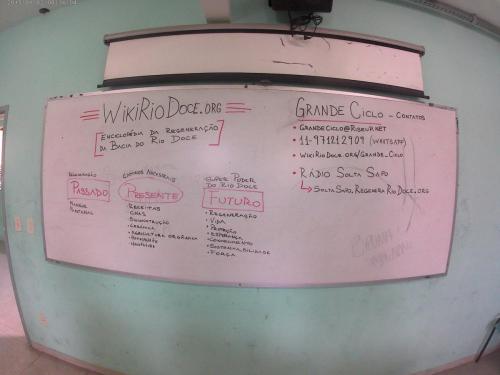 WIKIRIODOCE.ORG
[ENCICLOPÉDIA DA REGENERAÇÃO
DA BACIA DO RIO DOCE]
PASSADO
SABERES ANCESTRAIS
PRESENTE
• RECEITAS
• CHÁS
• BIOCONSTRUÇÃO
• CERÂMICA
• AGRICULTURA ORGÂNICA
SUPER PODER
DO RIO DOCE
FUTURO
• REGENERAÇÃO
• VIDA
• PROTEÇÃO
• ESPERANÇA
• CONHECIMENTO
• SUSTENTABILIDADE
• FORÇA
GRANDE CICLO - CONTATOS
• GRANDECICLO@RISEUP.NET
• 11-971212909 (WHATSAPP)
• WIKIRIODOCE.ORG/GRANDE_CICLO
• RÁDIO SOLTA SAPO
↳ SOLTASAPO.REGENERARIODOCE.ORG